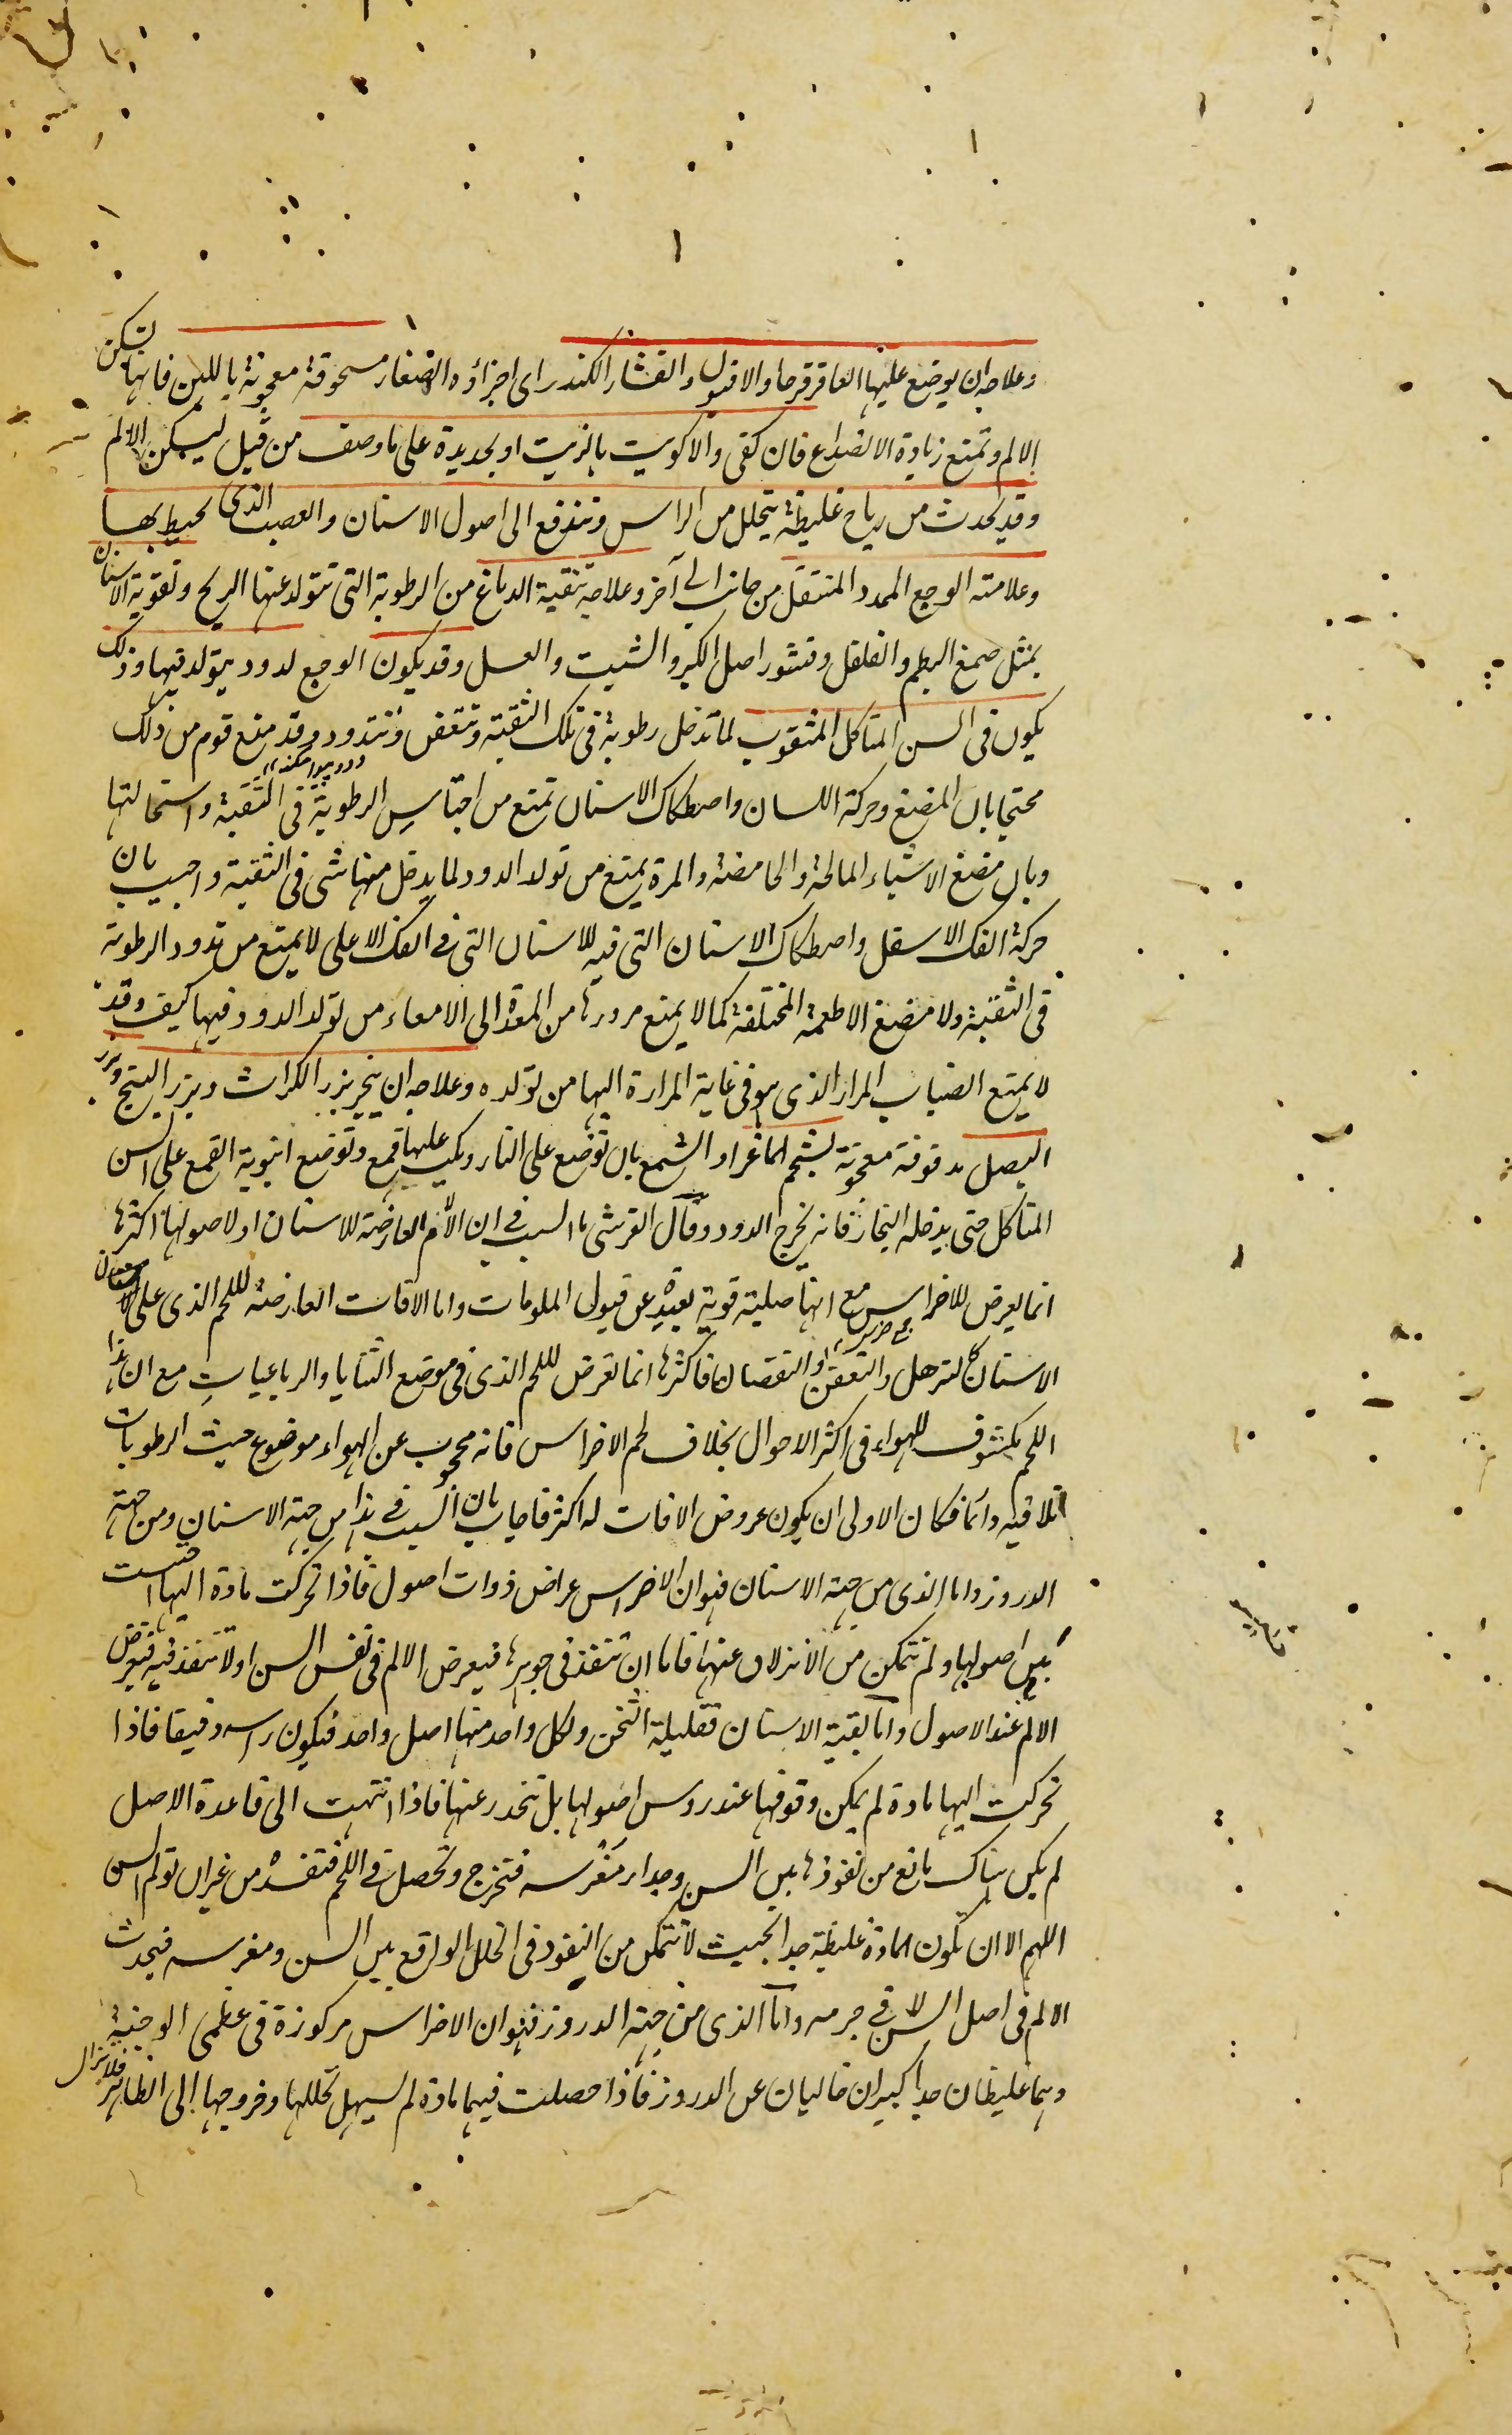 وعلاجه ان يوضع عليها العاقرقرحا والافيون والقشار الكندر اى اجزاؤه الصغار مسحوقة معجونة باللبن فانها تسكن
الالم وتمنع زيادة الانصداع فان كفى والا كويت بالزيت او بحديدة على ما وصف من قبل ليسكن الالم
وقد يحدث من رياح غليظة يتحلل من الراس وتندفع الى اصول الاسنان والعصب الذى يحيط بها
وعلامته الوجع الممدد المنتقل من جانب الى آخر وعلاجه تنقية الدماغ من الرطوبة التى تتولد عنها الريح وتقوية الاسنان
بمثل صمغ البطم والفلفل وقشور اصل الكبر والشبت والعسل وقد يكون الوجع لدود يتولد فيها وذلك
يكون فى السن المتاكل المثقوب لما تدخل رطوبة فى تلك الثقبة وتتعفن وتتدود وقد منع قوم من ذلك
محتجا بان المضغ وحركة اللسان واصطكاك الاسنان تمنع من احتباس الرطوبة فى الثقبة واستحالتها
وبان مضغ الاشياء المالحة والحامضة والمرة يمنع من تولد الدود لما يدخل منها شى فى الثقبة واجيب بان
حركة الفك الاسفل واصطكاك الاسنان التى فيه للاسنان التى فى الفك الاعلى لا يمنع من تدود الرطوبة
فى الثقبة ولا مضغ الاطعمة المختلفة كما لا يمنع مرورها من المعدة الى الامعاء من تولد الدود فيها كيف وقد
لا يمنع انصباب المرار الذى هو فى غاية المرارة اليها من تولده وعلاجه ان يبخر ببزر الكراث وبزر البنج وبزر
البصل مدقوقة معجونة بشحم الماعز او الشمع بان توضع على النار ويكب عليها قمع وتوضع انبوبة القمع على السن
المتاكل حتى يدخله البخار فانه يخرج الدود وقال القرشى ما السبب فى ان الآلام العارضة للاسنان او لاصولها اكثرها
انما يعرض للاضراس مع انها صلبة قوية بعيدة عن قبول الملومات واما الافات العارضة للحم الذى على الاسنان
الاسنان كالترهل والتعفن والنقصان فاكثرها انما تعرض للحم الذى فى موضع الثنايا والرباعيات مع ان هذا
اللحم مكشوف للهواء فى اكثر الاحوال بخلاف لحم الاضراس فانه محجوب عن الهواء موضوع حيث الرطوبات
تلاقيه دائما فكان الاولى ان يكون عروض الافات له اكثر فاجاب بان السبب فى هذا من جهة الاسنان ومن جهة
الدروز واما الذى من جهة الاسنان فهو ان الاضراس عراض ذوات اصول فاذا تحركت مادة اليها احتبست
بين اصولها ولم تتمكن من الانزلاق عنها فاما ان تنفذ فى جوهرها فيعرض الالم فى نفس السن او لا تنفذ فيه فيعرض
الالم عند الاصول واما بقية الاسنان فقليلة الثخن ولكل واحد منها اصل واحد فيكون راسه دقيقا فاذا
تحركت اليها مادة لم يمكن وقوفها عند روس اصولها بل تنحدر عنها فاذا انتهت الى قاعدة الاصل
لم يكن هناك مانع من نفوذها بين السن وجدار مغرسه فتخرج وتحصل فى اللحم فتفسده من غير ان تولم السن
اللهم الا ان تكون المادة غليظة جدا بحيث لا تتمكن من النفوذ فى الخلل الواقع بين السن ومغرسه فيحدث
الالم فى اصل السن لا فى جرمه واما الذى من جهة الدروز فهو ان الاضراس مركوزة فى عظمى الوجنة
وهما غليظان جدا كبيران خاليان عن الدروز فاذا حصلت فيهما مادة لم يسهل تحللها وخروجها الى الظاهر فلا تزال